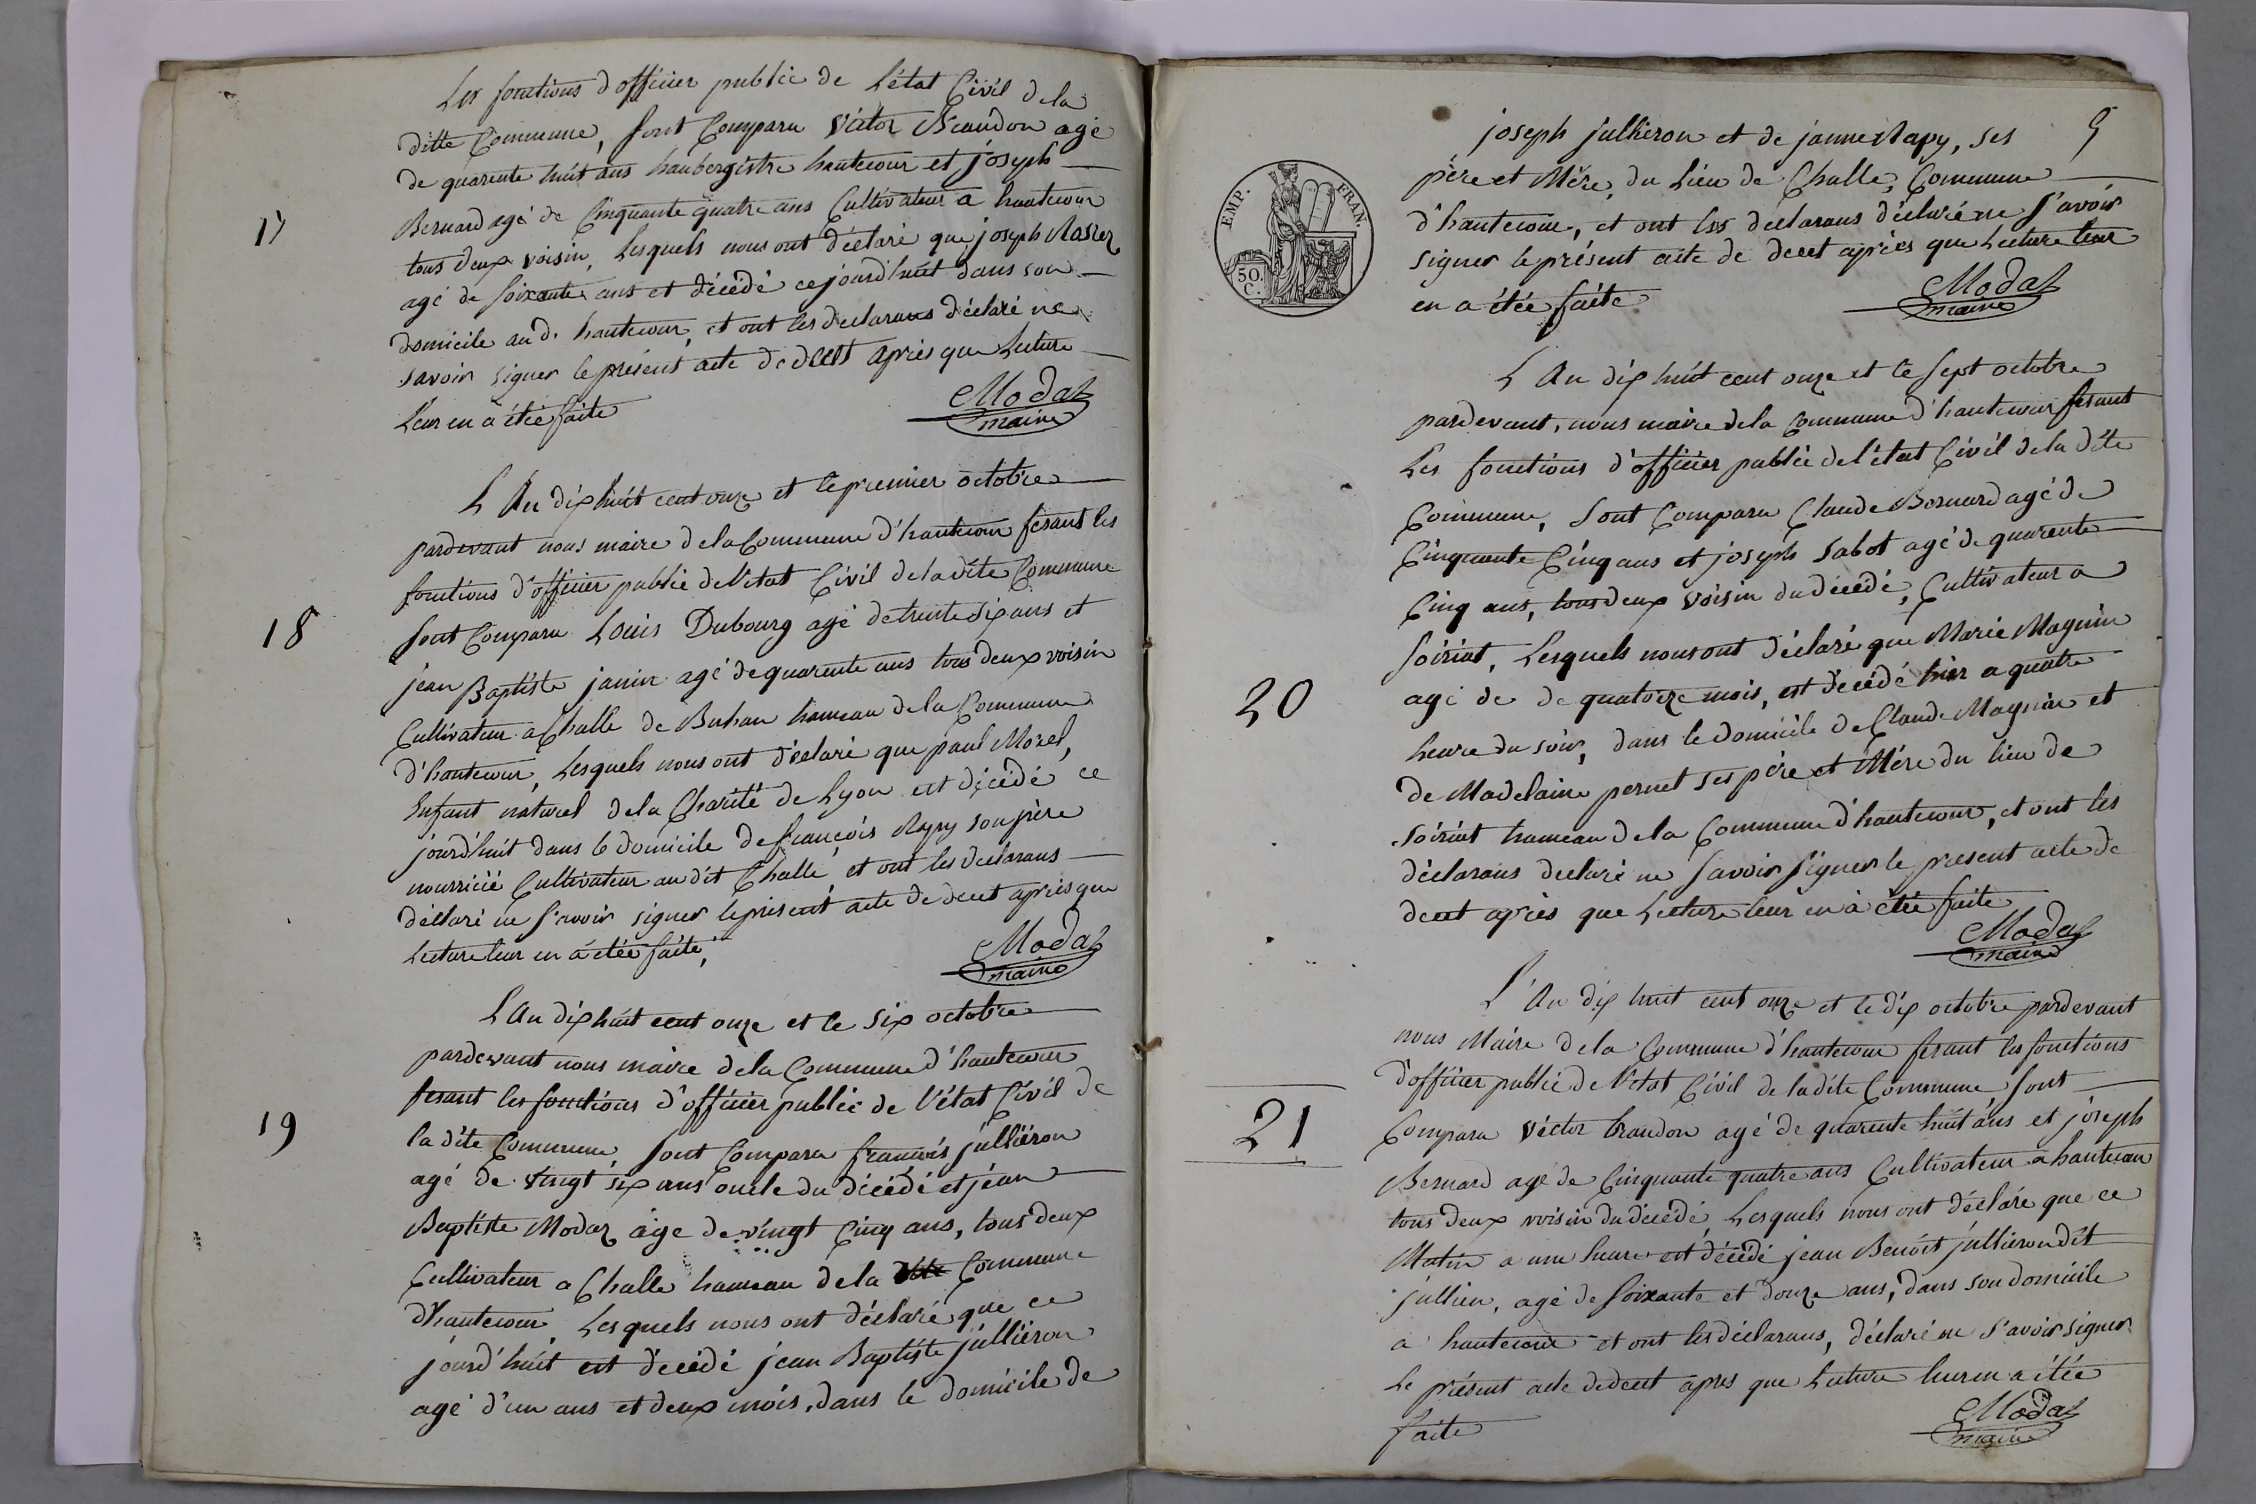 Les fonctions d'officier public de L'état Civil dela
ditte Commune, sont Comparu Victor Braudon agé
de quarente huit ans haubergiste hautecour et joseph
17
Bernard agé de Cinquante quatre ans Cultivateur a hautecour
tous deux voisin, Lesquels nous ont déclaré que joseph
agé de soixante ans et décédé ce jourd'huit dans son
domicile au d. hautecour, et ont les declarans déclaré ne
savoir signer le présent acte de decet après que Lecture
Leur en a étée faite
Modaz
maire
L'An dix huit cent onze et le premier octobre
pardevant nous maire dela Commune d'hautecour fesant les
fonctions d'officier public de l'état Civil dela dite Commune
18
sont Comparu Louis Dubourg agé de trente six ans et
jean Baptiste janin agé de quarente ans tous deux voisin
Cultivateur a Challe de Buhan hameau dela Commune
d'hautecour, Lesquels nous ont déclaré que paul Morel,
Enfant naturel dela Charité de Lyon est décédé ce
jourd'huit dans le domicile de françois Rapy son père
nourricié Cultivateur au dit Challe et ont les declarans
déclaré ne s'avoir signer le présent acte de decet après que
Lecture leur en a étée faite,
Modaz
maire
L'An dix huit cent onze et le six octobre
pardevant nous maire dela Commune d'hautecour
fesant les fonctions d'officier public de l'état Civil de
19
la dite Commune sont Comparu francois julliéron
agé de vingt six ans oncle du décédé et jéan
Baptiste Modaz âge de vingt Cinq ans, tous deux
Cultivateur a Challe hameau dela Commune
d'hautecour, Lesquels nous ont déclaré que ce
jourd'huit est décédé jean Baptiste julliéron
agé d'un ans et deux mois, dans le domicile de
5
joseph jullieron et de janne Rapy, ses
père et Mére, du Lieu de Challe, Commune
d'hautecour, et ont les déclarans déclaré ne s'avoir
signer le présent acte de decet après que Lecture leur
en a étée faite
Modaz
maire
EMP. FRAN.
50.
C.
L'An dix huit cent onze et le sept octobre
pardevant, nous maire dela Commune d'hautecour fesant
Les fonctions d'officier public de l'état Civil dela dite
Commune, Sont Comparu Claude Bernard agé de
Cinquante Cinq ans et joseph Sabot agé de quarente
Cinq ans, tous deux voisin du décédé, Cultivateur a
Soiriat, Lesquels nous ont déclaré que Marie Magnin
20
agé de de quatorze mois, est décédé hier a quatre
heure du soir, dans le domicile de Claude Magnin et
de Madelaine pernet ses père et Mére du lieu de
soiriat hameau dela Commune d'hautecour, et ont les
déclarans declaré ne savoir signer le présent acte de
decet après que Lecture leur en a étée faite
Modaz
maire
L'An dix huit cent onze et le dix octobre pardevant
nous Maire dela Commune d'hautecour fesant les fonctions
d'officier public de l'état Civil de la dite Commune sont
21
Comparu Victor braudon agé de quarente huit ans et joseph
Bernard agé de Cinquante quatre ans Cultivateur a hautecour
tous deux voisin du décédé, Lesquels nous ont déclaré que ce
Matin a une heure est décédé jean Benoit julliéron dit
jullien, agé de soixante et douze ans, dans son domicile
a hautecour et ont les déclarans, déclaré ne s'avoir signer
Le présent acte de decet apres que Lecture leur en a étée
faite
Modaz
maire